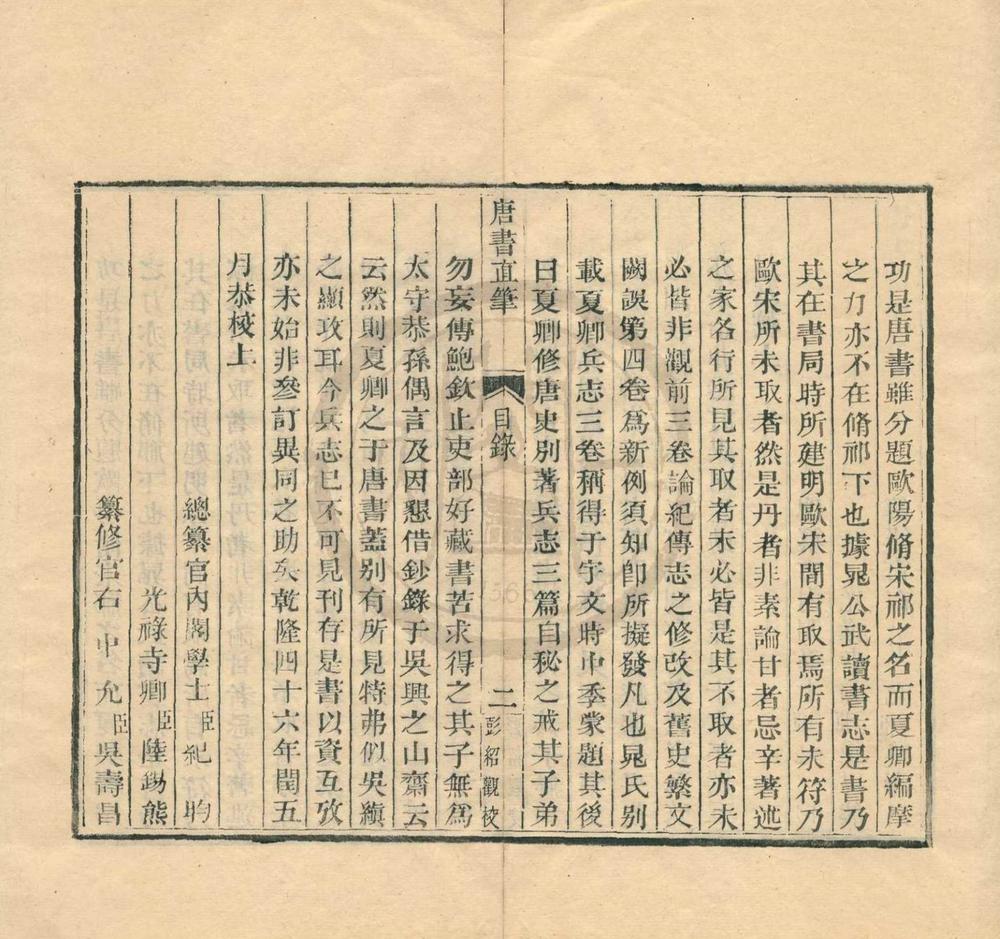 功是唐書雖分題歐陽脩宋祁之名而夏卿編摩
之力亦不在脩祁下也據晁公武讀書志是書乃
其在書局時所建明歐宋間有取焉所有未符乃
歐宋所未取者然是丹者非素論甘者忌辛著述
之家名行所見其取者未必皆是其不取者亦未
必皆非觀前三卷論紀傳志之修改及舊史繁文
闕誤第四卷爲新例須知卽所擬發凡也晁氏别
載夏卿兵志三卷稱得于宇文時中季蒙題其後
曰夏卿修唐史別著兵志三篇自秘之戒其子弟
唐書直筆 目錄 二 彭紹觀校
勿妄傳鮑欽止吏部好藏書苦求得之其子無爲
太守恭孫偶言及因懇借鈔錄于吳興之山齋云
云然則夏卿之于唐書蓋别有所見特弗似吳縝
之顯攻耳今兵志已不可見刊存是書以資互攷
亦未始非參訂異同之助矣乾隆四十六年閏五
月恭校上
總纂官內閣學士臣紀昀
光祿寺卿臣陸錫熊
纂修官右中允臣吳壽昌